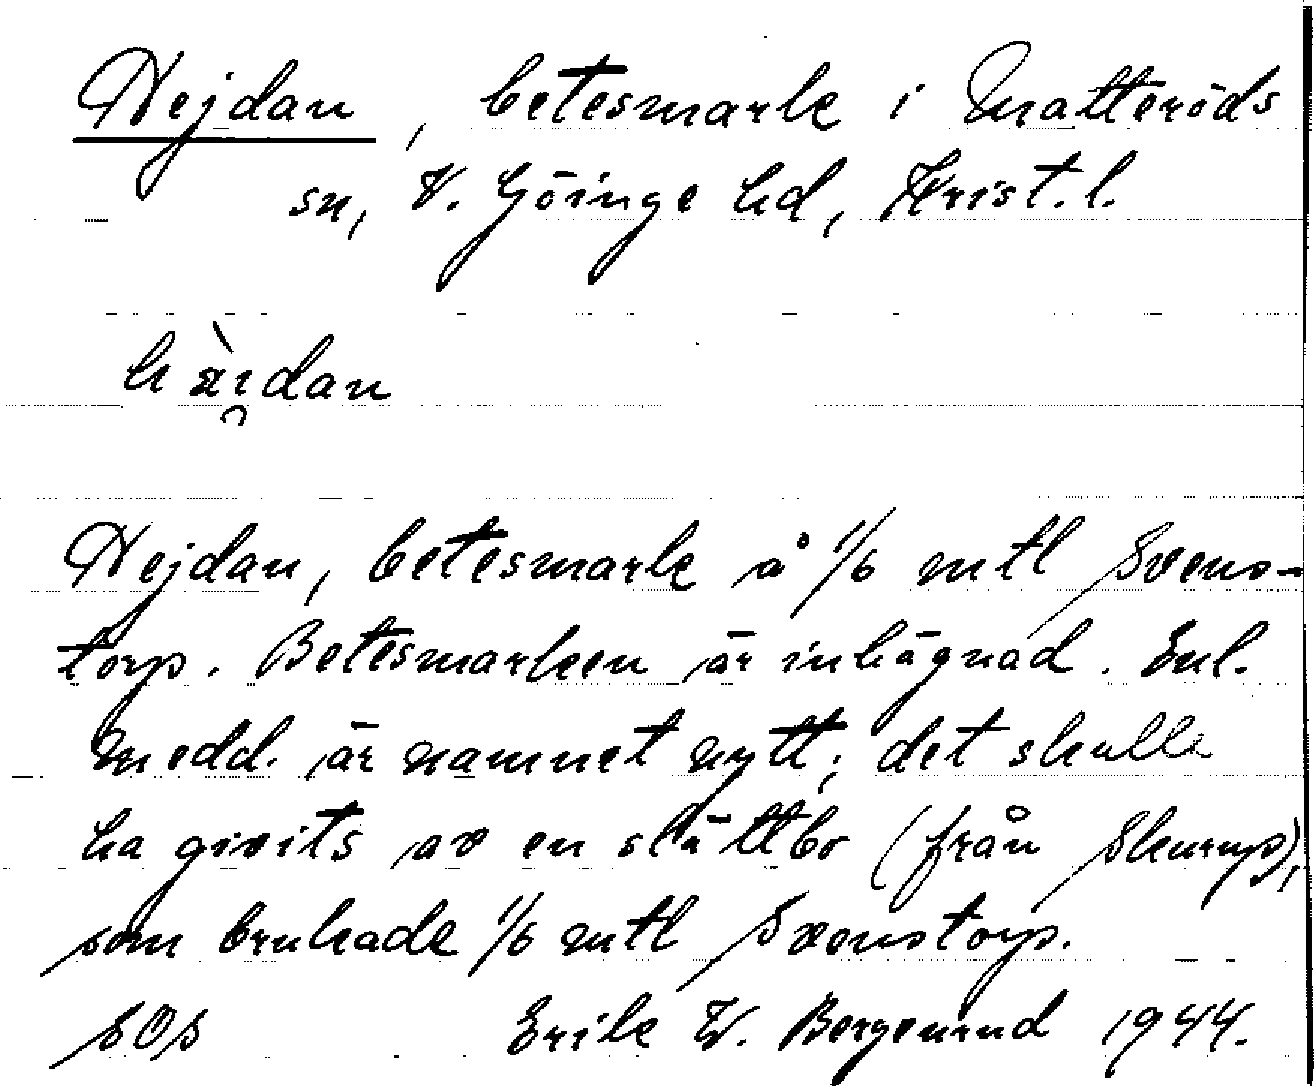 Hejdan, betesmark i Matteröds
sn, V. Göinge hd, Krist. l.
hὰi̯dan
Hejdan, betesmark å 1/6 mtl Svens-
torp. Betesmarken är inhägnad. Enl.
medd. är namnet nytt; det skulle
ha givits av en slättbo (från Skurup),
som brukade 1/6 mtl Svenstorp.
SOS Erik W. Bergenrud 1944.